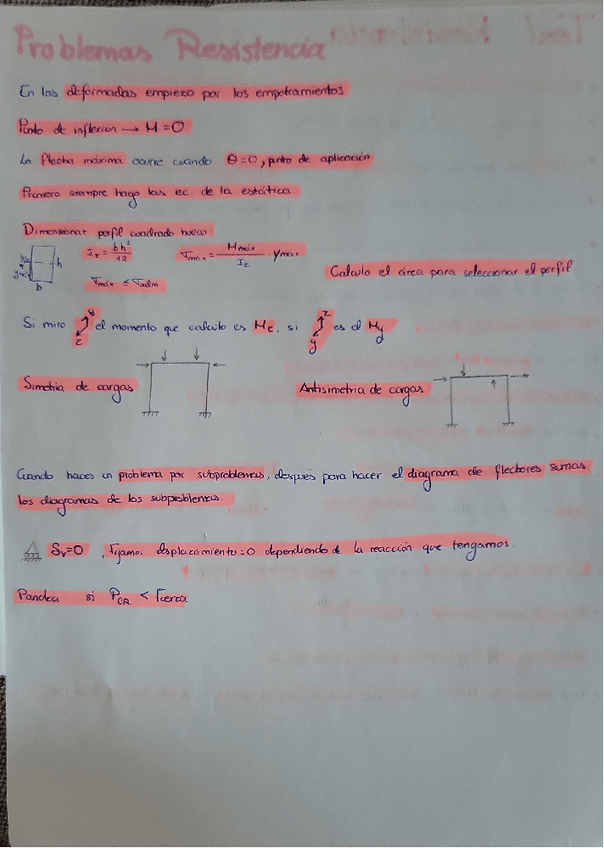 Problemas Resistencia
En las deformadas empiezo por los empotramientos
Punto de inflexion → M=0
La flecha máxima ocurre cuando θ=0, punto de aplicación
Primero siempre hago las ec. de la estática
Dimensionar perfil cuadrado hueco
h
b
I_z = bh³/12
σmax = Mmáx/I_z · ymax
σmáx ≤ σadm
Calculo el área para seleccionar el perfil
Si miro y z el momento que calculo es Mz, si z y es el My
Simetria de cargas
Antisimetria de cargas
Cuando haces un problema por subproblemas, después para hacer el diagrama de flectores sumas
los diagramas de los subproblemas.
Sv=0, Fijamos desplazamiento=0 dependiendo de la reacción que tengamos.
Pandea si PCR < Fuerza